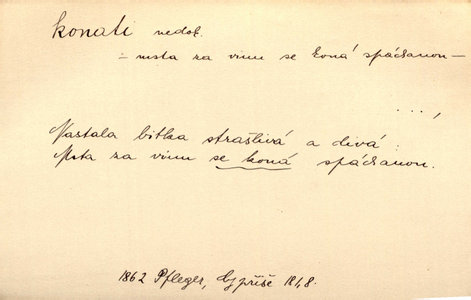 konati nedok.
– msta za vinu se koná spáchanou –
...,
Nastala bitka strašlivá a divá:
Msta za vinu se koná spáchanou.
1862 Pfleger, Cypřiše 18,8.